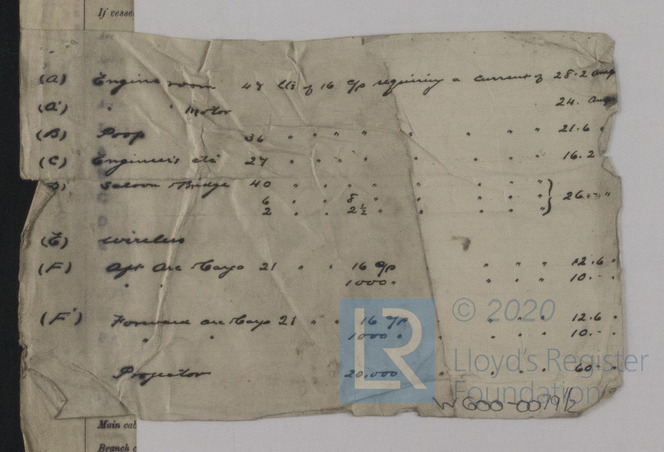 If vesse
(A) Engine room 47 lts of 16 c/p requiring a current of 28.2 amp
(A') " " Motor 24. amp
(B) Poop 36 " " " " " " " " 21.6 "
(C) Engineers etc 27 " " " " " " " " 16.2 "
D) Saloon Bridge 40 " " " " " " " " } 26.- "
6 " " 8 " " " " "
2 " " 2½ " " " " "
(E) Wireless
(F) Aft Arc Cargo 21 " " 16 c/p " " " 12.6 "
" " 1000 " " " " 10.- "
(F') Forward Arc Cargo 21 " " 16 c/p " " " " 12.6 "
" " 1000 " " " " 10.- "
Projector 20,000 " " " " 60 - "
LR © 2020
Lloyd's Register
Foundation
W600-0079/2
Main cab
Branch c